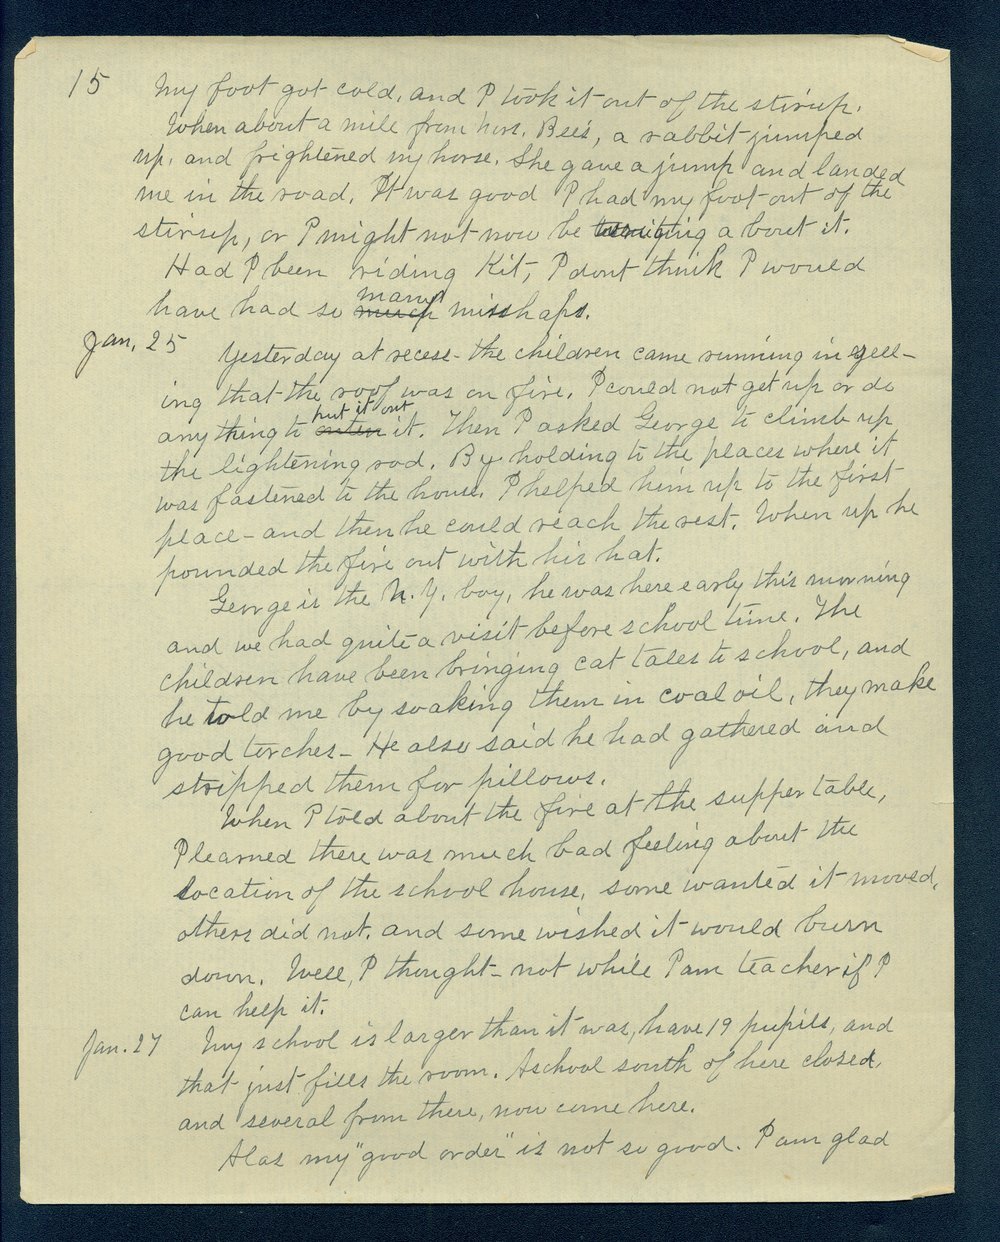 15 My foot got cold, and I took it out of the stirup.
When about a mile from hers. Bee's, a rabbit jumped
up, and frightened my horse. She gave a jump and landed
me in the road. It was good I had my foot out of the
stirrup, or I might not now be writing a bout it.
Had I been riding Kit, I dont think I would
many
have had so much misshaps.
Jan. 25 Yesterday at recess - the children came running in yell-
ing that the roof was on fire. I could not get up or do
put it out
any thing to it. Then I asked George to climb up
the lightening rod. By holding to the places where it
was fastened to the house. I helped him up to the first
place - and then he could reach the rest. When up he
pounded the fire out with his hat.
George is the N.Y. boy, he was here early this morning
and we had quite a visit before school time. The
children have been bringing cat tales to school, and
he told me by soaking them in coal oil, they make
good torches - He also said he had gathered and
stripped them for pillows.
When I told about the fire at the supper table,
I learned there was much bad feeling about the
location of the school house, some wanted it moved,
others did not, and some wished it would burn
down. Well, I thought - not while I am teacher if I
can help it.
Jan. 27 My school is larger than it was, have 19 pupils, and
that just fills the room. A school south of here closed,
and several from there, now come here.
Alas my "good order" is not so good. I am glad